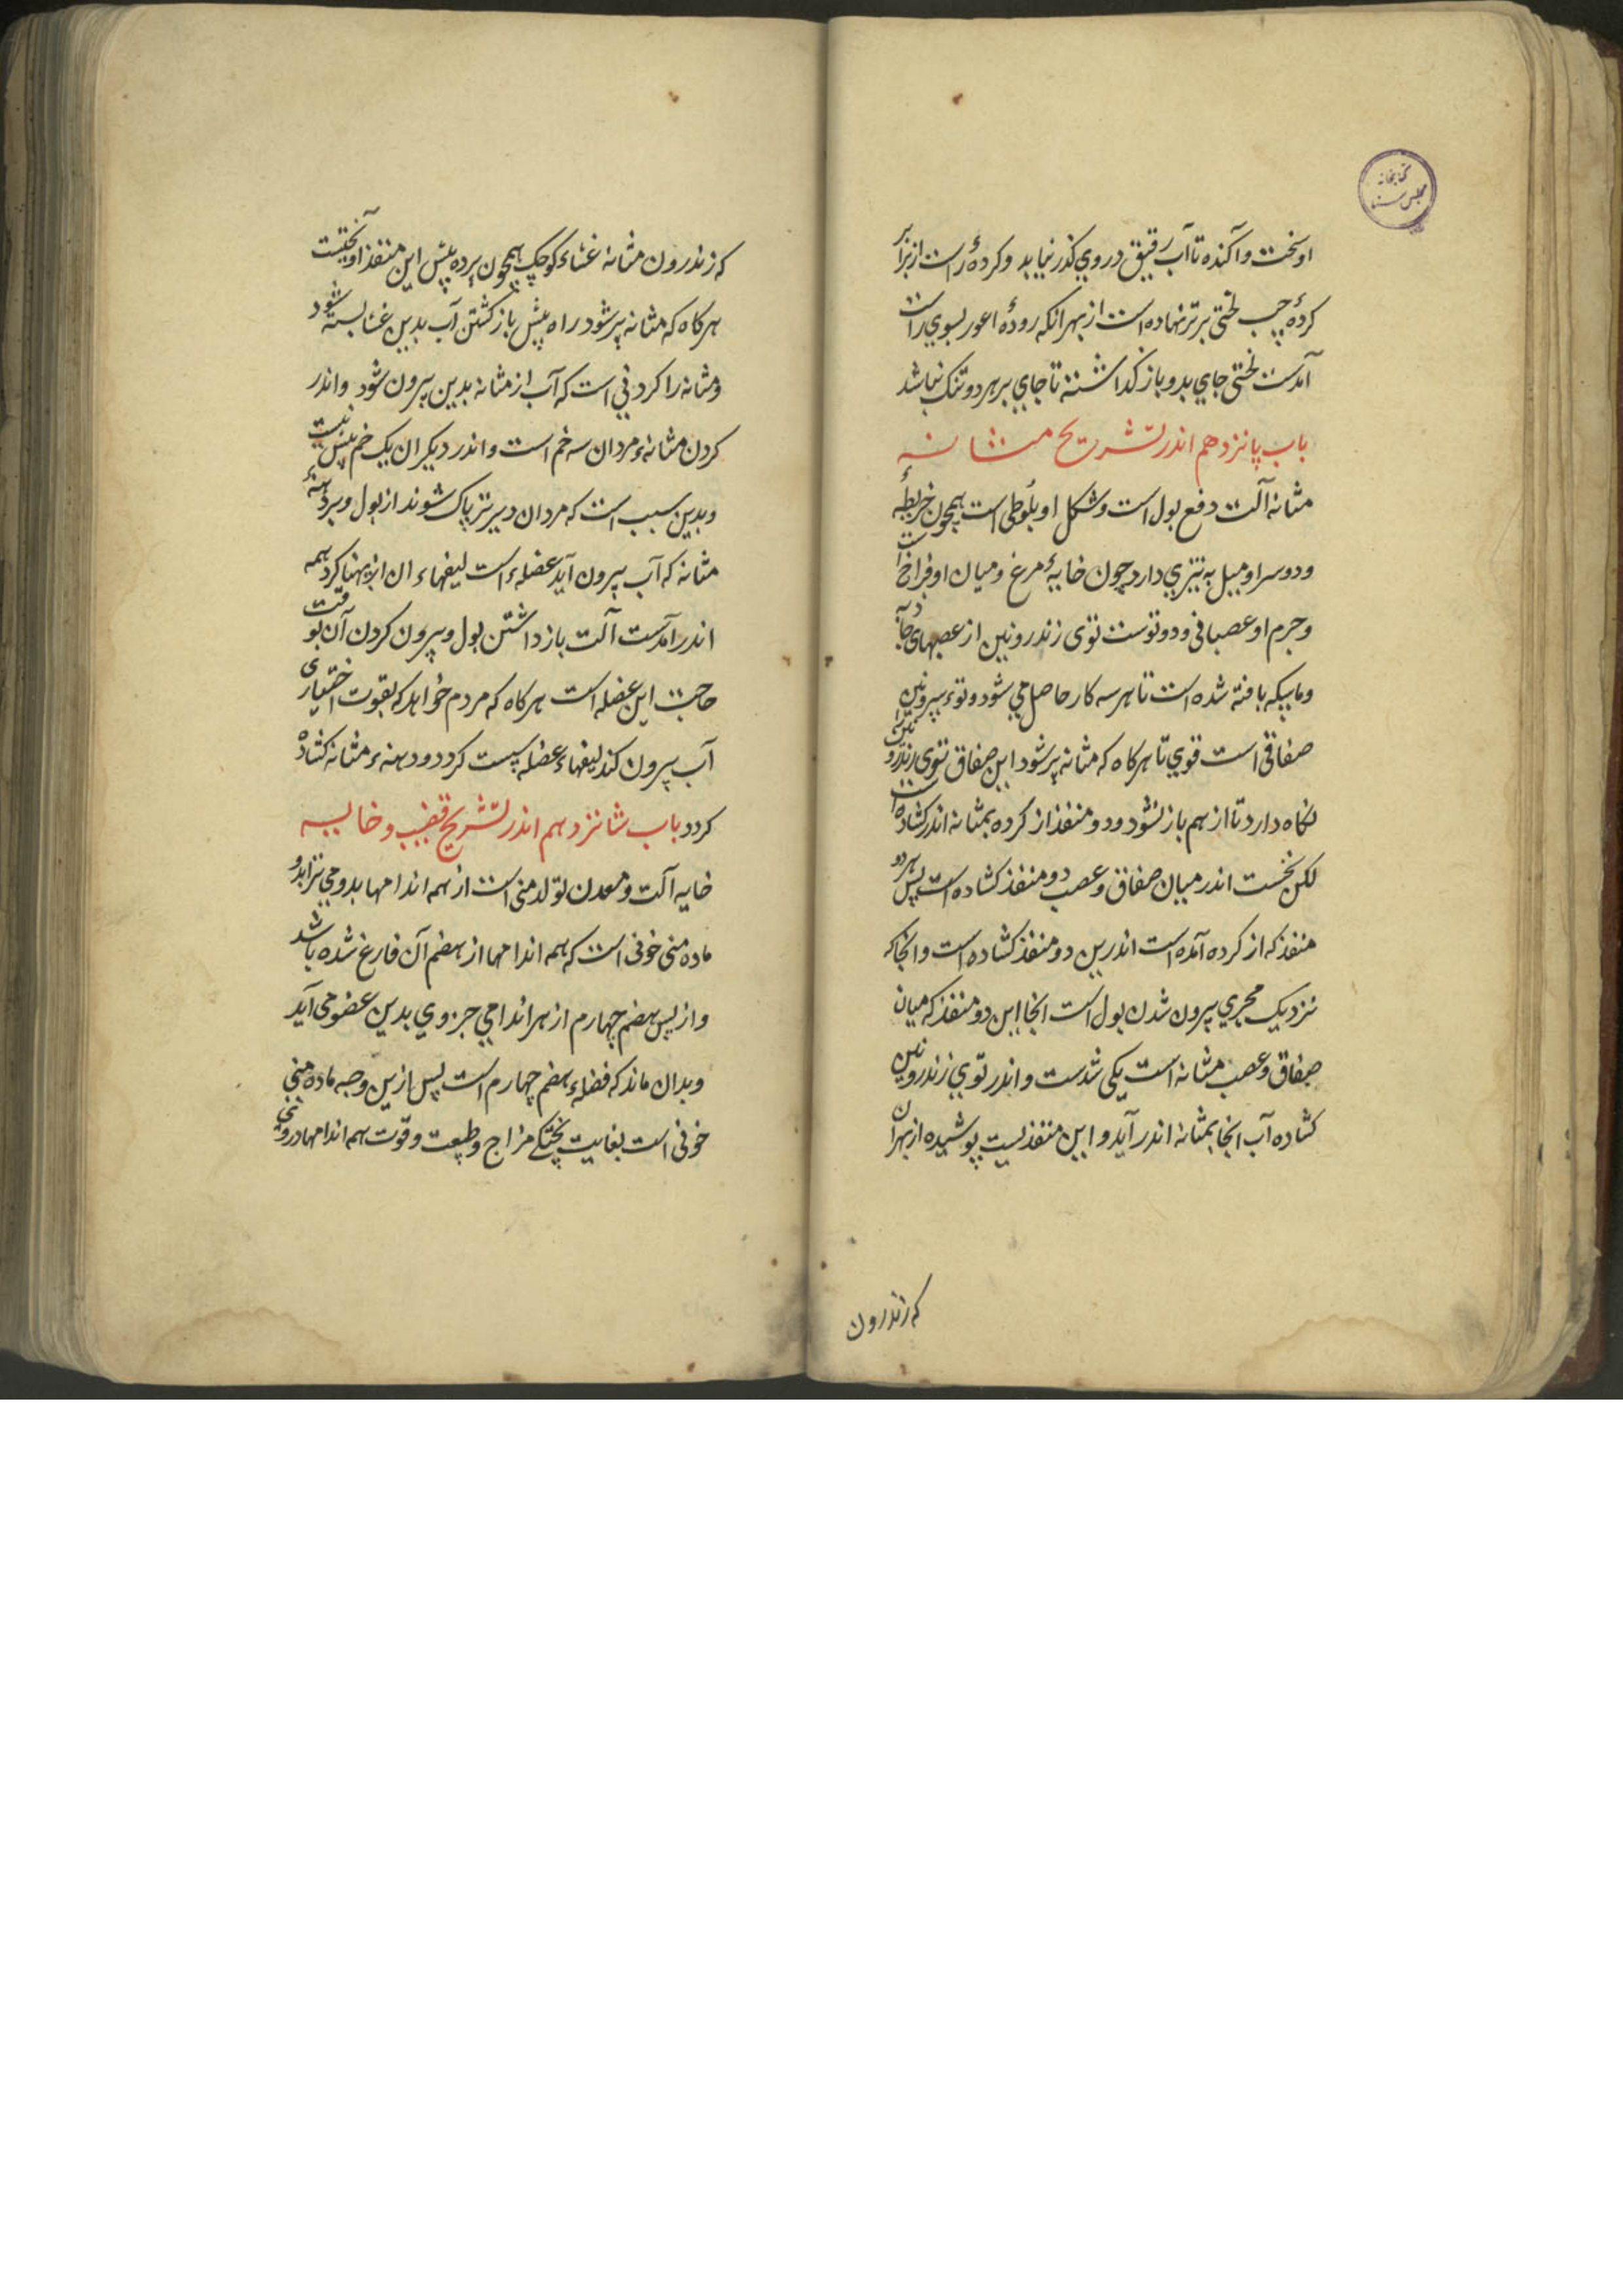 کتابخانه
مجلس سنا
او سخت و آکنده تا آب رقیق در وی کذر نیابد و کردهٔ راست از برابر
کردهٔ چپ لختی برتر نهاده است از بهر انکه رودهٔ اعور بسوی راست
آمدست لختی جای بدو باز کذاشته تا جای بر هر دو تنک نباشد
باب پانزدهم اندر تشریح مثانه
مثانه آلت دفع بول است و شکل او بلوطی است همچون خریطهٔ
و دو سر او میل به تیزی دارد چون خایهٔ مرغ و میان او فراخ است
و جرم او عصبانی و دو توست توی زندرونین از عصبهای
و ماییکه بافته شده است تا هر سه کار حاصل می شود و توء بیرونین
صفاقی است قوی تا هرکاه که مثانه پر شود این صفاق توی زندرونین را
نکاه دارد تا از هم باز نشود و دو منفذ از کرده بمثانه اندر کشاده است
لکن نخست اندر میان صفاق و عصب دو منفذ کشاده است پس هر دو
منفذ که از کرده آمده است اندرین دو منفذ کشاده است و انجا که
نزدیک مجری بیرون شدن بول است انجا این دو منفذ که میان
صفاق و عصب مثانه است یکی شدست و اندر توی زندرونین
کشاده آب انجا بمثانه اندر آید و این منفذ لیست پوشیده از بهر ان
که زندرون
که زندرون مثانه غشاء کوچک همچون پرده پیش این منفذ آویختست
هرکاه که مثانه پر شود راه پیش باز کشتن آب بدین غشا بسته شود
و مثانه را کردنی است که آب از مثانه بدین بیرون شود و اندر
کردن مثانهء مردان سه خم است و اندر دیکران یک خم بیش نیست
و بدین سبب است که مردان دیرتر پاک شوند از بول و بر دهنهٔ
مثانه که آب بیرون آید عضلهء است لیفهاء ان از پهنا کرد همه
اندر آمدست آلت باز داشتن بول و بیرون کردن آن بوقت
حاجت این عضله است هرکاه که مردم خواهد که بقوت اختیاری
آب بیرون کند لیفهاء عضله سست کردد و دهنهء مثانه کشاده
کردد باب شانزدهم اندر تشریح قضیب و خایه
خایه آلت و معدن تولد منی است از همه اندامها بدو می تراید و
ماده منی خونی است که همه اندامها از هضم آن فارغ شده باشد
و از پس هضم چهارم از هر اندامی جزوی بدین عضو می آید
و بدان ماند که فضلهء هضم چهارم است پس ازین وجه ماده منی
خونی است بغایت پختکی مزاج و طبیعت و قوت همه اندامها در وی